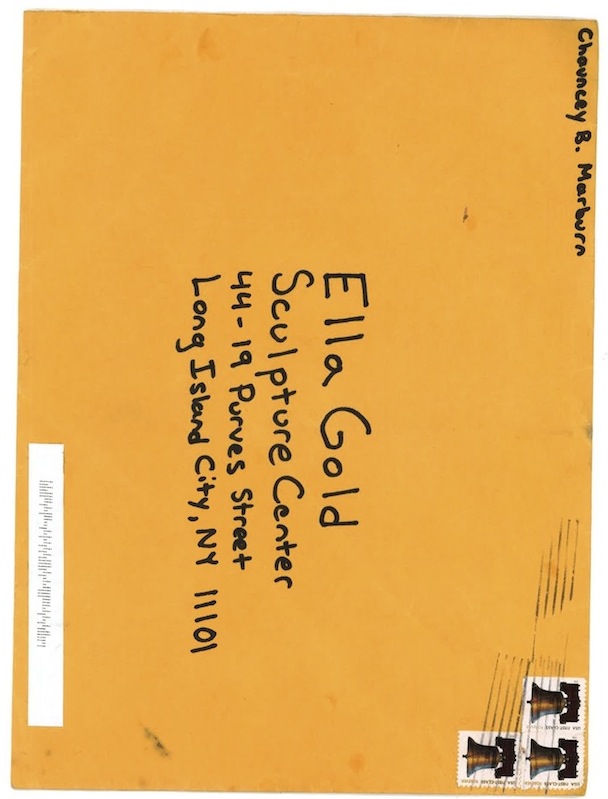 Chauncey B. Marburn
Ella Gold
SculptureCenter
44-19 Purves Street
Long Island City, NY 11101
USA FIRST-CLASS FOREVER
USA FIRST-CLASS FOREVER
USA FIRST-CLASS FOREVER